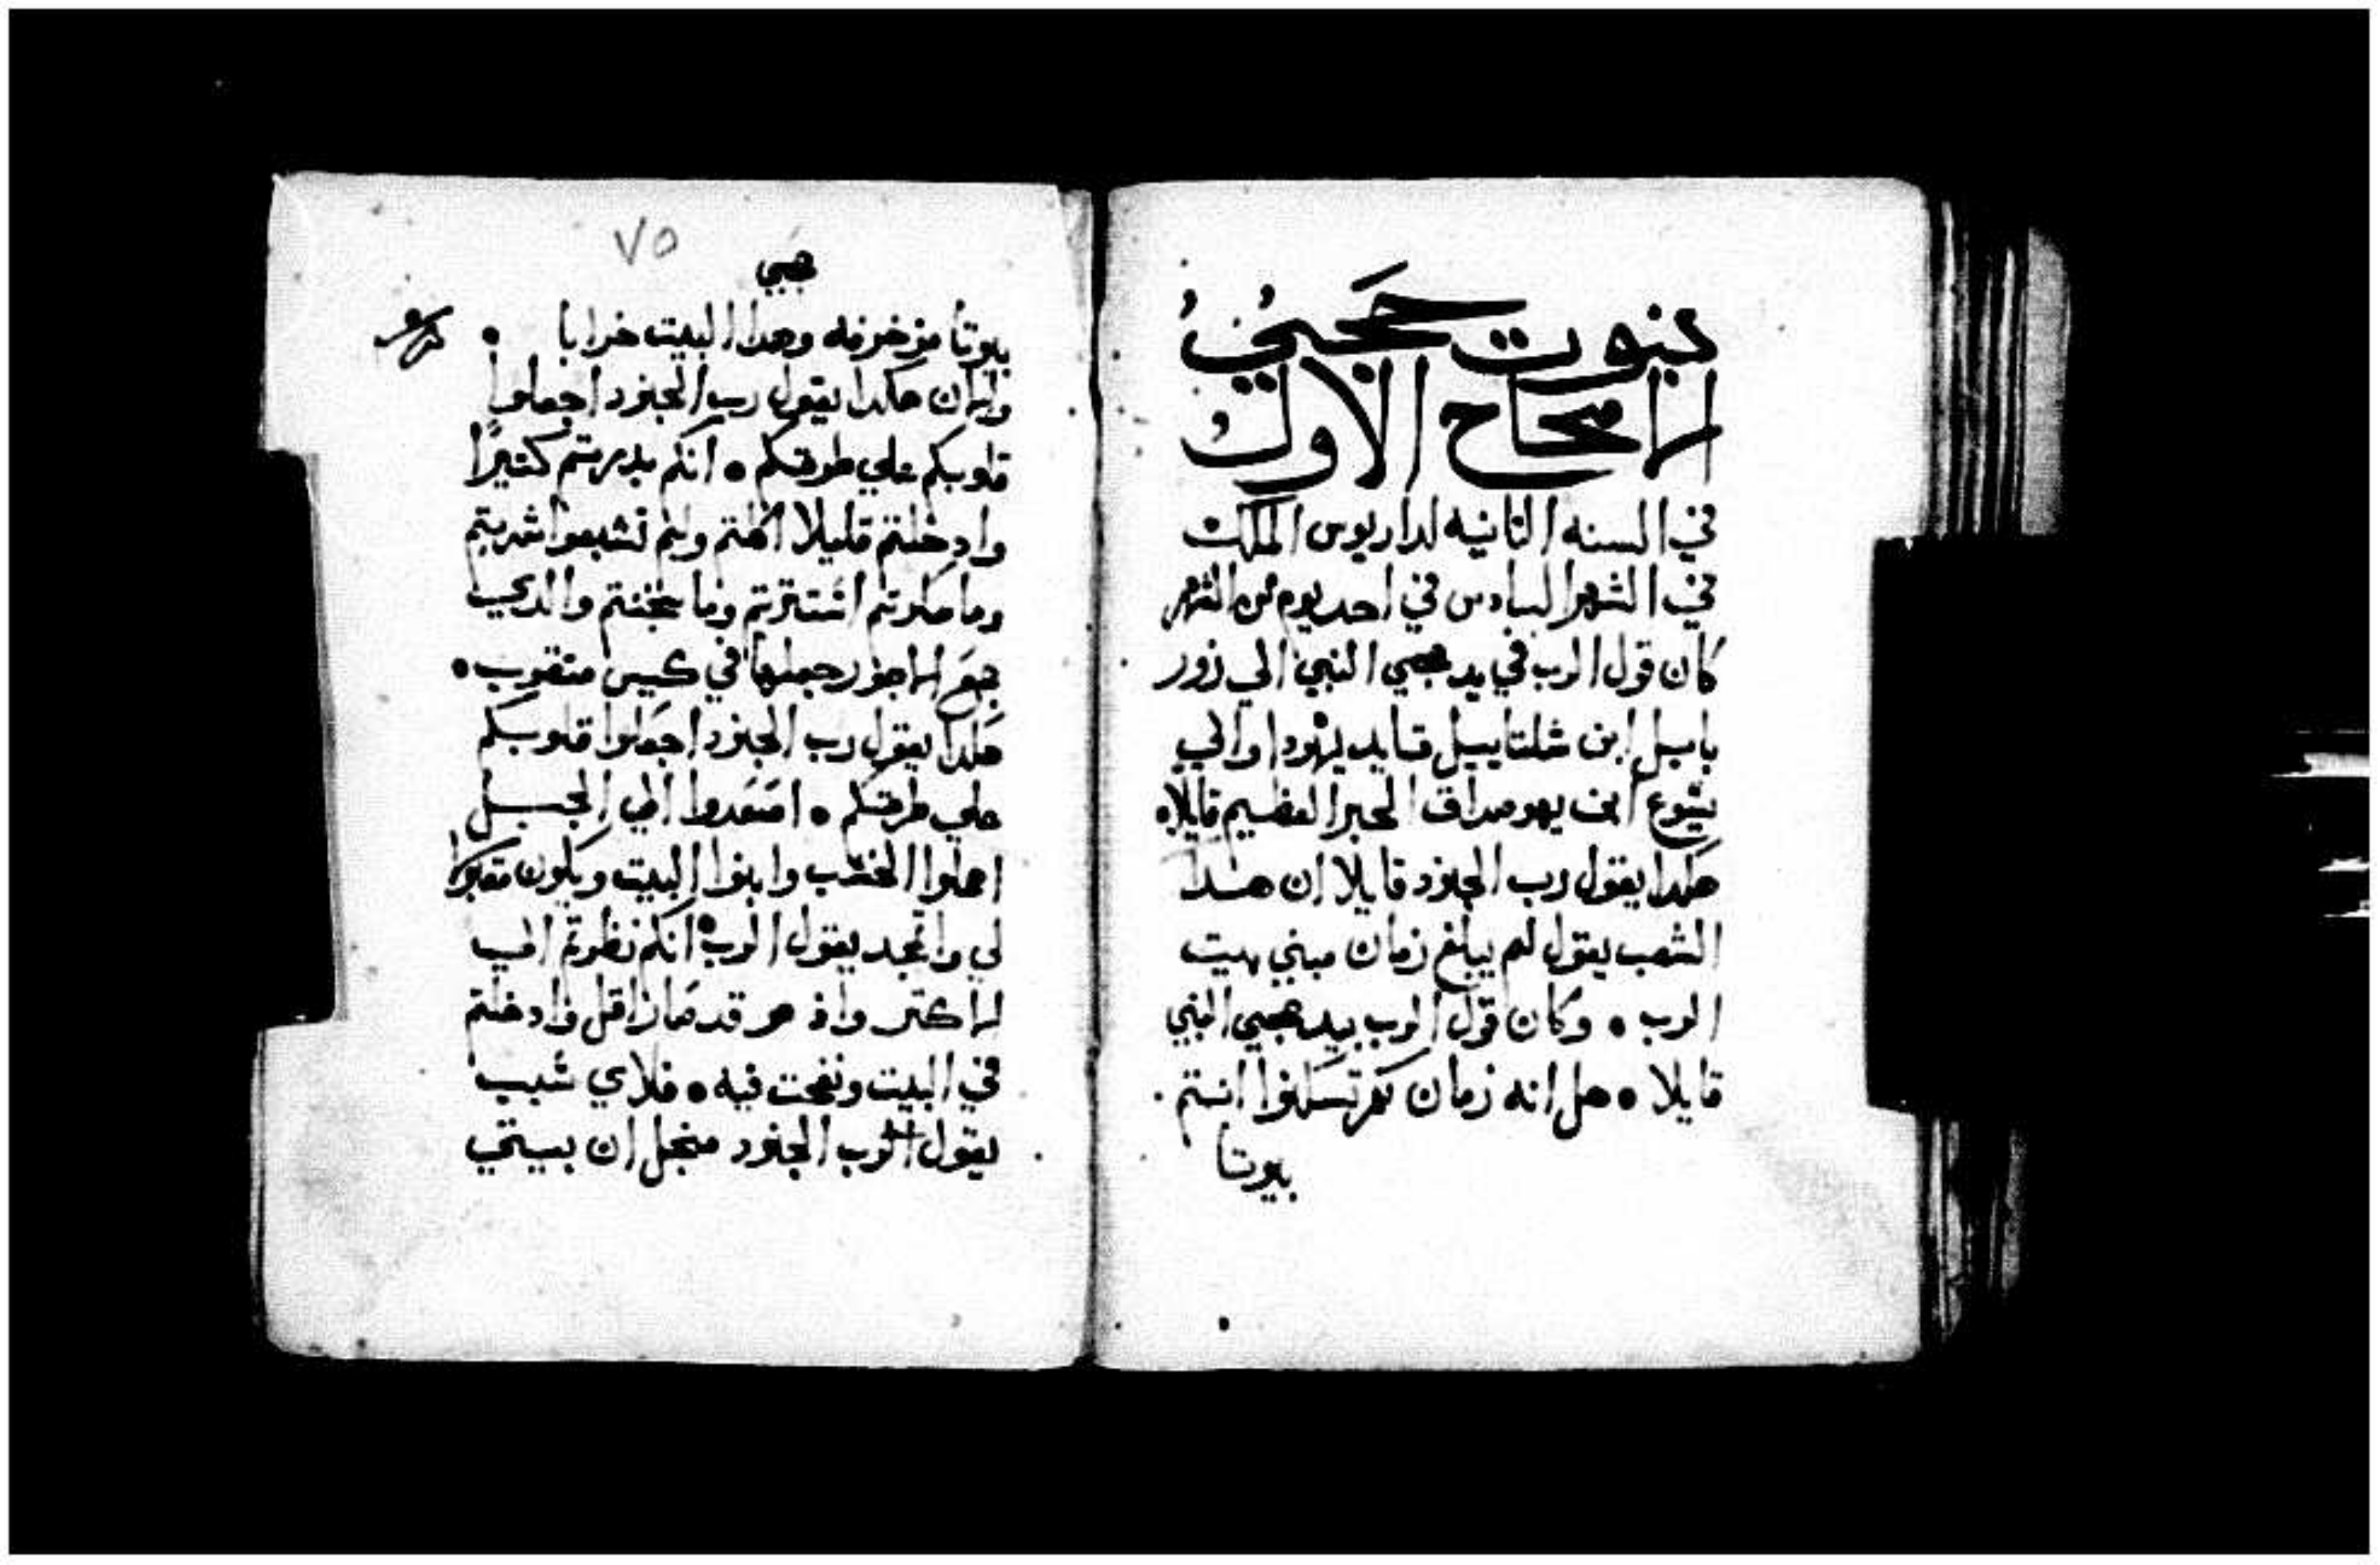 نبوت حجيي
الاصحاح الاول
في السنه الثانيه لداريوس الملك
في الشهر السادس في احد يوم من الشهر
كان قول الرب في يد حجيي النبي الي زور
بابيل ابن شلتاييل قايد يهودا والي
يشوع ابن يهوصداق الحبر العظيم قايلا
هكدا يقول رب الجنود قايلا ان هدا
الشعب يقول لم يبلغ زمان مبني بيت
الرب • وكان قول الرب بيد حجيي النبي
قايلا • هل انه زمان لكم تسكنوا انتم
بيوتا
٧٥
حجيي
بيوتا مزخرفه وهدا البيت خرابا •
والان هكدا يقول رب الجنود اجعلوا
قلوبكم علي طرقكم • انكم بدرتم كتيرًا
وادخلتم قليلا اكلتم ولم تشبعوا شربتم
وما سكرتم اشتترتم وما سخنتم والدي
جمع الاجور جعلها في كيس منقوب •
هكدا يقول رب الجنود اجعلوا قلوبكم
علي طرقكم • اصعدوا الي الجبل
احملوا الخشب وابنوا البيت ويكون مقبولا
لي واتمجد يقول الرب • انكم نظرتم الي
الاكتر واذ هو قد صار اقل وادخلتم
في البيت ونفخت فيه • فلاي سبب
يقول الرب الجنود منجل ان بيتي